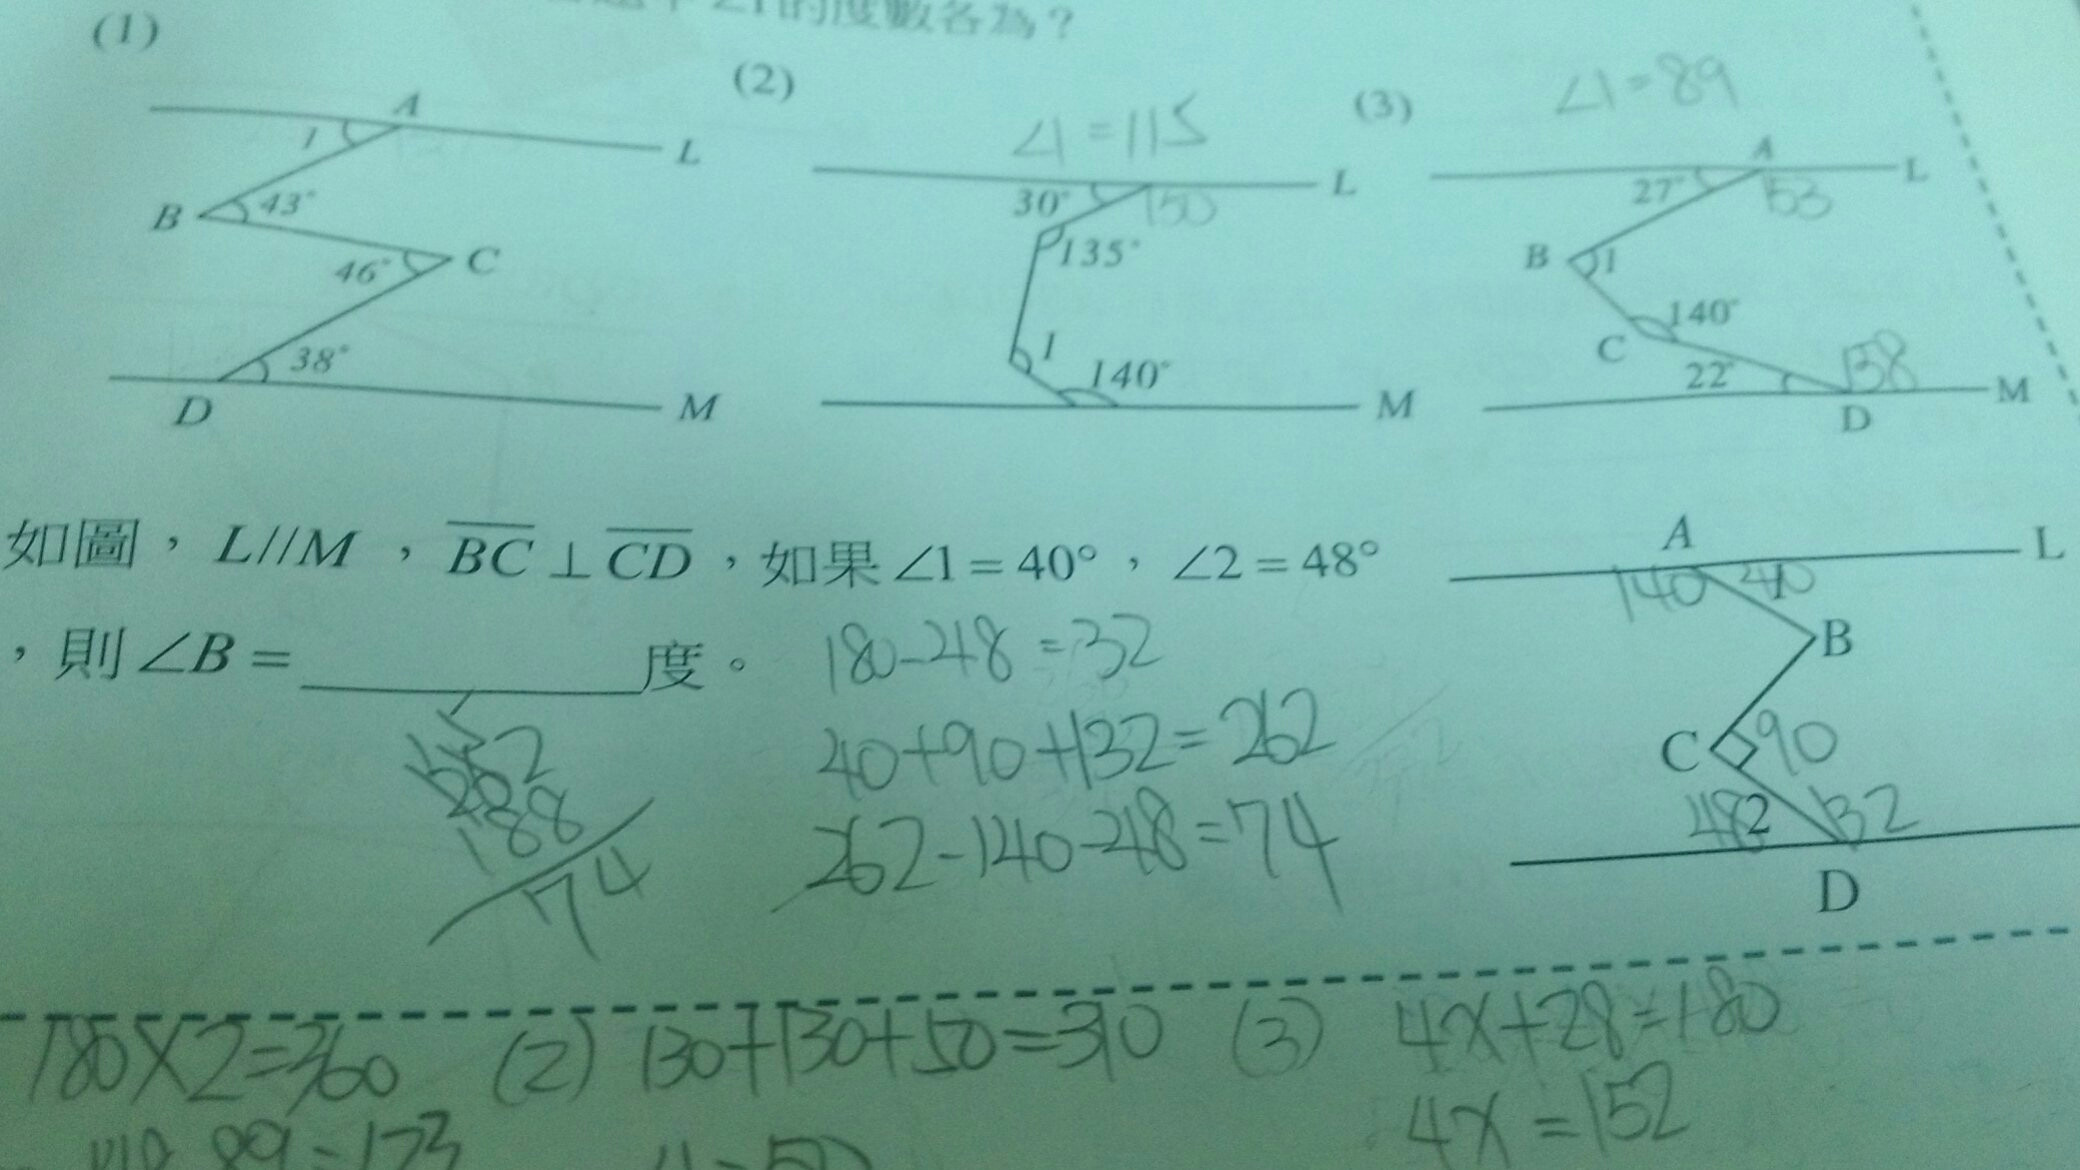 的度數各為？
(1)
A
1
L
B
43°
46°
C
38°
D
M
(2)
∠1=115
30°
150
L
135°
1
140°
M
(3)
∠1=89
A
27°
153
L
B
1
140°
C
22°
158
M
D
如圖，L//M，BC⊥CD，如果∠1=40°，∠2=48°
，則∠B=度。
180-48=32
40+90+132=262
262-140-48=74
262
188
74
A
L
140
40
B
C
90
48
2
132
D
180×2=360
(2) 130+130+50=310
(3) 4x+28=180
4x=152